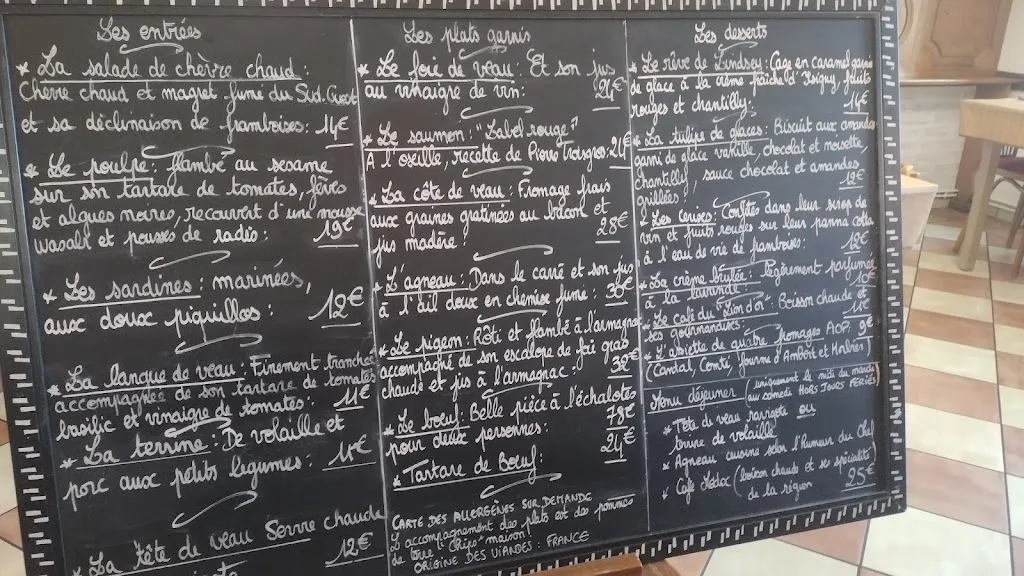 Les entrées
* La salade de chèvre chaud :
Chèvre chaud et magret fumé du Sud-Ouest
et sa déclinaison de framboises : 14€
* Le poulpe : flambé au sesame
sur son tartare de tomates, fèves
et algues noires, recouvert d'une mousse
wasabi et pousses de radis : 19€
* Les sardines : marinées,
aux doux piquillos : 12€
* La langue de veau : Finement tranchée
accompagnée de son tartare de tomates
basilic et vinaigre de tomates : 11€
* La terrine : De volaille et
porc aux petits legumes : 11€
* La tête de veau Servie chaude
12€
Les plats garnis
* Le foie de veau : Et son jus
au vinaigre de vin : 24€
* Le saumon : "Label rouge"
A l'oseille, recette de Pierre Troisgros : 21€
* La côte de veau : Fromage frais
aux graines gratinées au bacon et
jus madère : 28€
* L'agneau : Dans le carré et son jus
à l'ail doux en chemise fumé : 36€
* Le pigeon : Rôti et flambé à l'armagnac
accompagné de son escalope de foie gras
chaude et jus à l'armagnac : 39€
* Le bœuf : Belle pièce à l'échalotes
pour deux personnes : 79€
* Tartare de Bœuf : 24€
CARTE DES ALLERGÈNES SUR DEMANDE
L'accompagnement des plats est des pommes
de terre "maison"
ORIGINE DES VIANDES : FRANCE
Les desserts
* Le rêve de Lindsay : Cage en caramel garnie
de glace à la crème fraîche d'Isigny, fruits
rouges et chantilly : 14€
* La tulipe de glaces : Biscuit aux amandes
garni de glace vanille, chocolat et noisette,
chantilly, sauce chocolat et amandes
grillées : 12€
* Les cerises : Confites dans leur sirop de
vin et fruits rouges sur leur panna cotta
à l'eau de vie de framboises : 12€
* La crème brûlée : légèrement parfumée
à la lavande :
* Le café du "Lion d'Or" : Boisson chaude et
ses gourmandises :
* L'assiette de quatre fromages AOP : 9€
(Cantal, Comté, Fourme d'Ambert et
Menu déjeuner (uniquement le midi du mardi
au samedi HORS JOURS FÉRIÉS)
* Tête de veau ravigote ou
terrine de volaille
* Agneau cuisiné selon l'humeur du Chef
* Café Médoc (boisson chaude et sa spécialité
de la région 25€